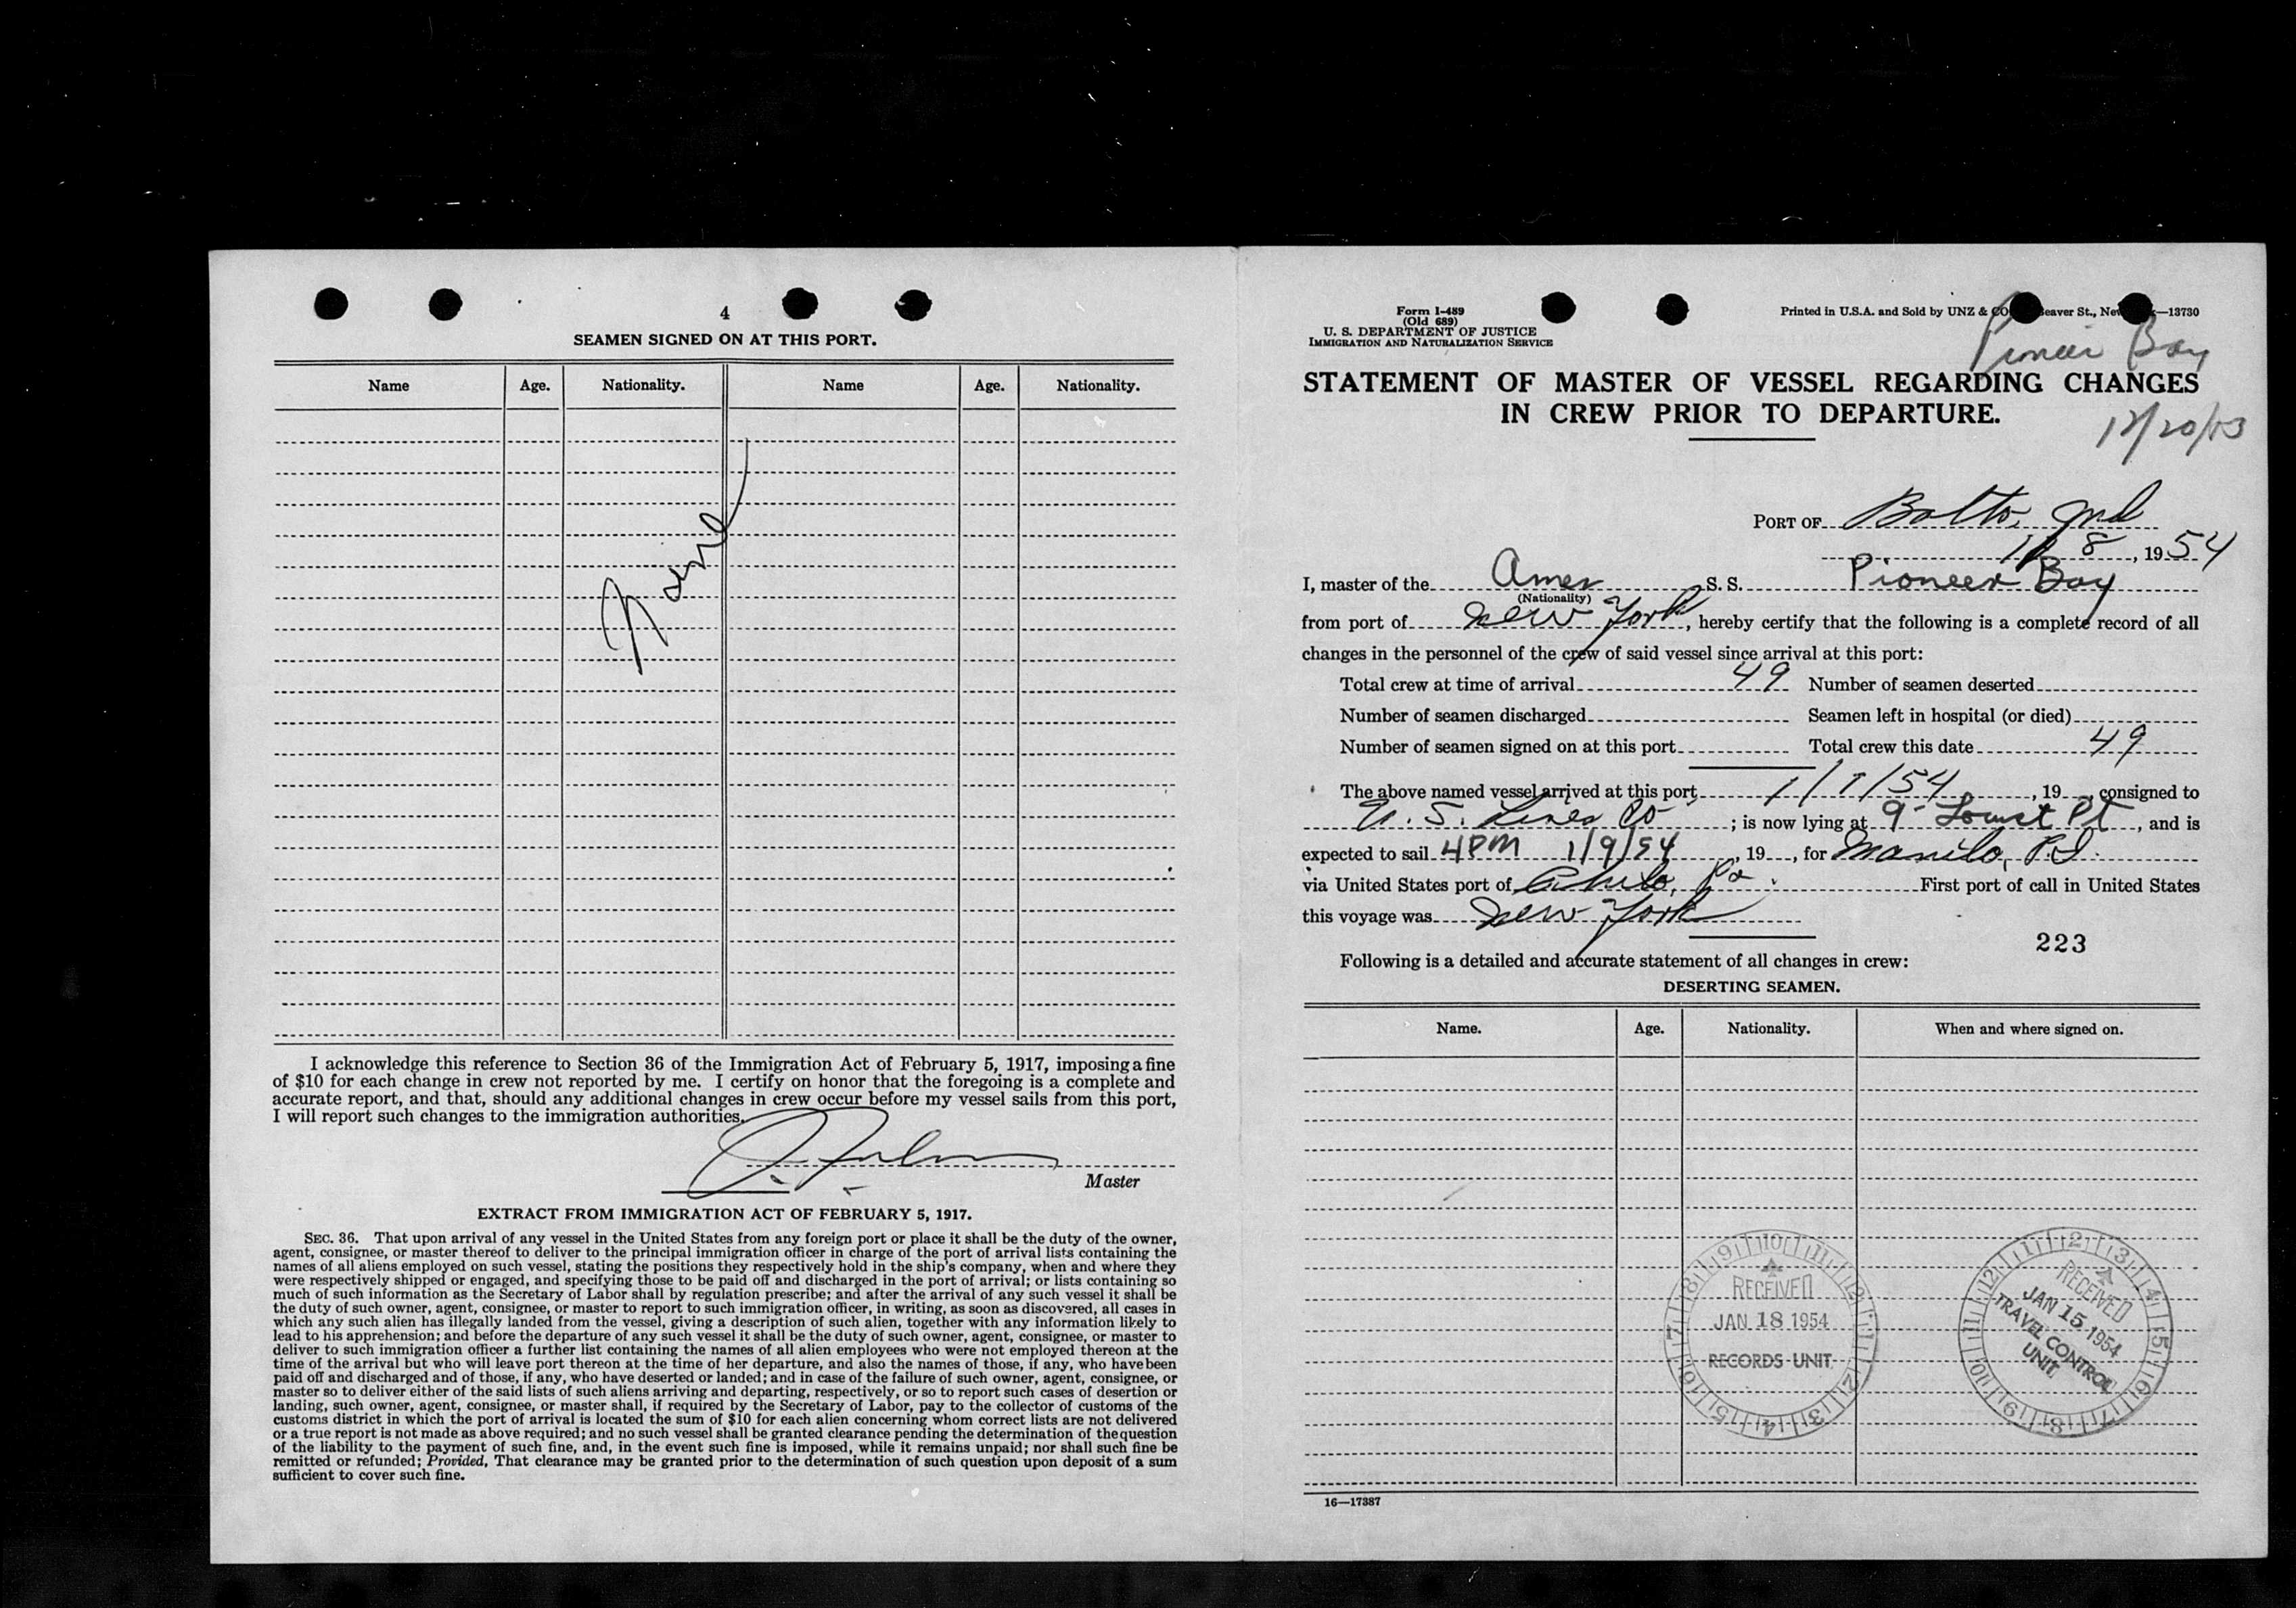 4
SEAMEN SIGNED ON AT THIS PORT.
Name Age. Nationality. Name Age. Nationality.
None
I acknowledge this reference to Section 36 of the Immigration Act of February 5, 1917, imposing a fine
of $10 for each change in crew not reported by me. I certify on honor that the foregoing is a complete and
accurate report, and that, should any additional changes in crew occur before my vessel sails from this port,
I will report such changes to the immigration authorities.
Master
EXTRACT FROM IMMIGRATION ACT OF FEBRUARY 5, 1917.
SEC. 36. That upon arrival of any vessel in the United States from any foreign port or place it shall be the duty of the owner,
agent, consignee, or master thereof to deliver to the principal immigration officer in charge of the port of arrival lists containing the
names of all aliens employed on such vessel, stating the positions they respectively hold in the ship's company, when and where they
were respectively shipped or engaged, and specifying those to be paid off and discharged in the port of arrival; or lists containing so
much of such information as the Secretary of Labor shall by regulation prescribe; and after the arrival of any such vessel it shall be
the duty of such owner, agent, consignee, or master to report to such immigration officer, in writing, as soon as discovered, all cases in
which any such alien has illegally landed from the vessel, giving a description of such alien, together with any information likely to
lead to his apprehension; and before the departure of any such vessel it shall be the duty of such owner, agent, consignee, or master to
deliver to such immigration officer a further list containing the names of all alien employees who were not employed thereon at the
time of the arrival but who will leave port thereon at the time of her departure, and also the names of those, if any, who have been
paid off and discharged and of those, if any, who have deserted or landed; and in case of the failure of such owner, agent, consignee, or
master so to deliver either of the said lists of such aliens arriving and departing, respectively, or so to report such cases of desertion or
landing, such owner, agent, consignee, or master shall, if required by the Secretary of Labor, pay to the collector of customs of the
customs district in which the port of arrival is located the sum of $10 for each alien concerning whom correct lists are not delivered
or a true report is not made as above required; and no such vessel shall be granted clearance pending the determination of the question
of the liability to the payment of such fine, and, in the event such fine is imposed, while it remains unpaid; nor shall such fine be
remitted or refunded; Provided, That clearance may be granted prior to the determination of such question upon deposit of a sum
sufficient to cover such fine.
Form I-489
(Old 689)
U. S. DEPARTMENT OF JUSTICE
IMMIGRATION AND NATURALIZATION SERVICE
Printed in U.S.A. and Sold by UNZ & CO eaver St., New —13730
Pioneer Bay
STATEMENT OF MASTER OF VESSEL REGARDING CHANGES
IN CREW PRIOR TO DEPARTURE.
12/20/53
PORT OF Balto, Md
8, 1954
I, master of the Amer S. S. Pioneer Bay
(Nationality)
from port of New York, hereby certify that the following is a complete record of all
changes in the personnel of the crew of said vessel since arrival at this port:
Total crew at time of arrival 49 Number of seamen deserted
Number of seamen discharged Seamen left in hospital (or died)
Number of seamen signed on at this port Total crew this date 49
The above named vessel arrived at this port 1/7/54, 19 , consigned to
U. S. Lines Co ; is now lying at 9 Locust Pt, and is
expected to sail 4PM 1/9/54, 19 , for Manila, P.I.
via United States port of Phila, Pa. First port of call in United States
this voyage was New York
223
Following is a detailed and accurate statement of all changes in crew:
DESERTING SEAMEN.
Name. Age. Nationality. When and where signed on.
RECEIVED
JAN 18 1954
RECORDS UNIT
RECEIVED
JAN 15 1954
TRAVEL CONTROL
UNIT
16—17387